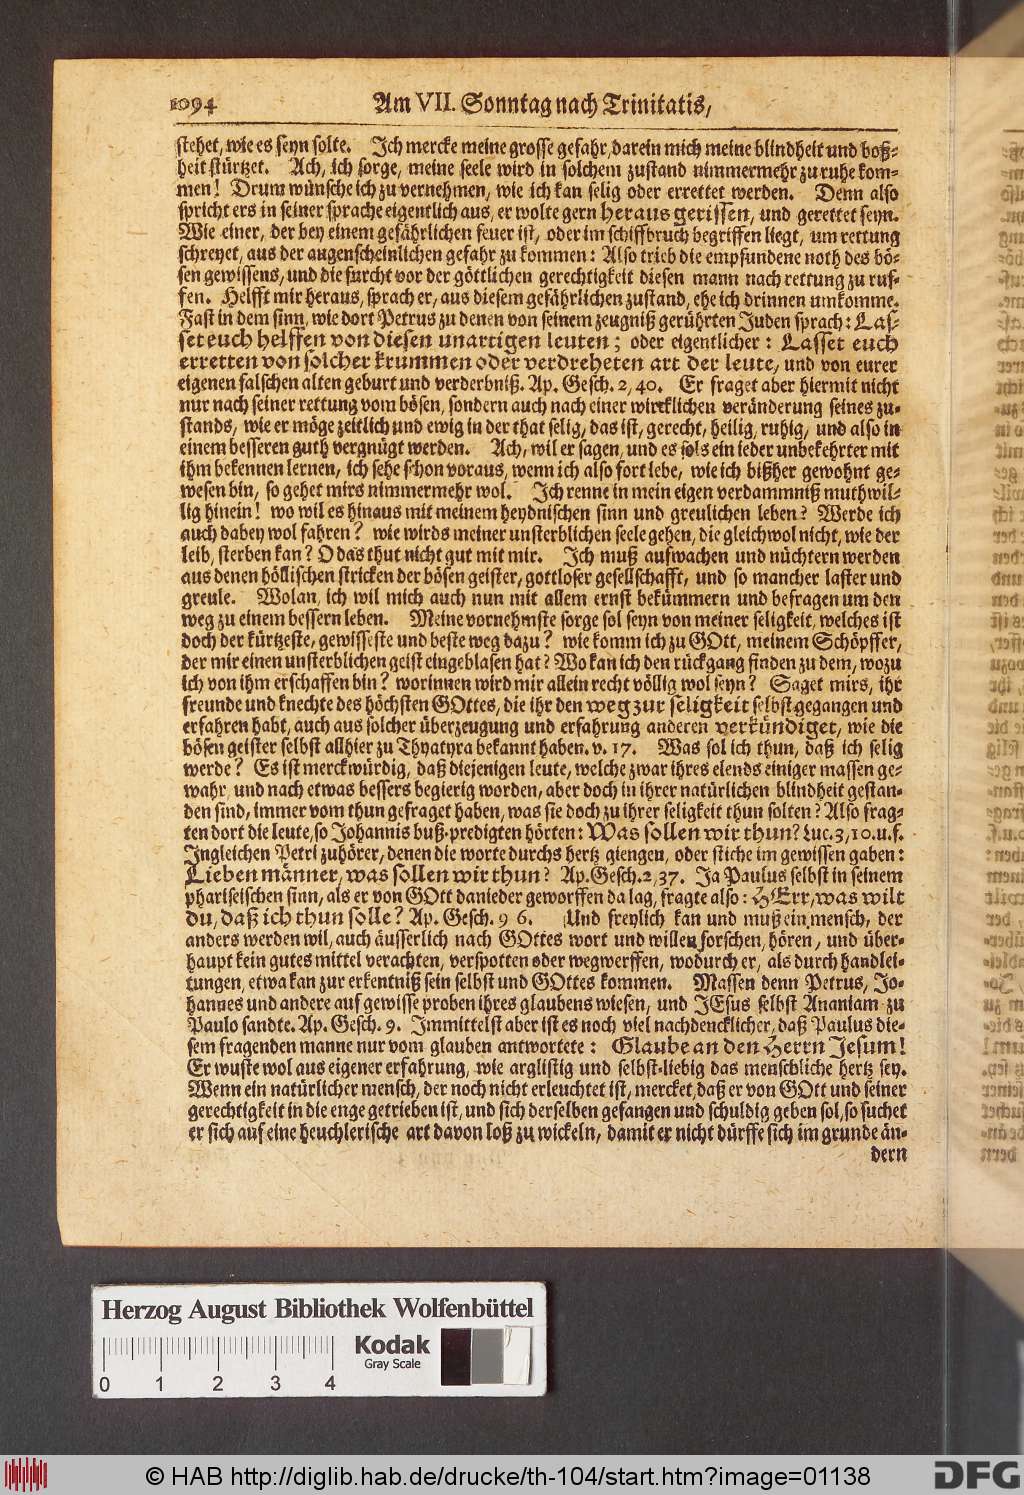 1094 Am VII. Sonntag nach Trinitatis,
stehet, wie es seyn solte. Ich mercke meine grosse gefahr, darein mich meine blindheit und boß-
heit stürtzet. Ach, ich sorge, meine seele wird in solchem zustand nimmermehr zu ruhe kom-
men! Drum wünsche ich zu vernehmen, wie ich kan selig oder errettet werden. Denn also
spricht ers in seiner sprache eigentlich aus, er wolte gern heraus gerissen, und gerettet seyn.
Wie einer, der bey einem gefährlichen feuer ist, oder im schiffbruch begriffen liegt, um rettung
schreyet, aus der augenscheinlichen gefahr zu kommen: Also trieb die empfundene noth des bö-
sen gewissens, und die furcht vor der göttlichen gerechtigkeit diesen mann nach rettung zu ruf-
fen. Helfft mir heraus, sprach er, aus diesem gefährlichen zustand, ehe ich drinnen umkomme.
Fast in dem sinn, wie dort Petrus zu denen von seinem zeugniß gerührten Juden sprach: Las-
set euch helffen von diesen unartigen leuten; oder eigentlicher: Lasset euch
erretten von solcher krummen oder verdreheten art der leute, und von eurer
eigenen falschen alten geburt und verderbniß. Ap. Gesch. 2, 40. Er fraget aber hiermit nicht
nur nach seiner rettung vom bösen, sondern auch nach einer wircklichen veränderung seines zu-
stands, wie er möge zeitlich und ewig in der that selig, das ist, gerecht, heilig, ruhig, und also in
einem besseren guth vergnügt werden. Ach, wil er sagen, und es sols ein ieder unbekehrter mit
ihm bekennen lernen, ich sehe schon voraus, wenn ich also fort lebe, wie ich bißher gewohnt ge-
wesen bin, so gehet mirs nimmermehr wol. Ich renne in mein eigen verdammniß muthwil-
lig hinein! wo wil es hinaus mit meinem heydnischen sinn und greulichen leben? Werde ich
auch dabey wol fahren? wie wirds meiner unsterblichen seele gehen, die gleichwol nicht, wie der
leib, sterben kan? O das thut nicht gut mit mir. Ich muß aufwachen und nüchtern werden
aus denen höllischen stricken der bösen geister, gottloser gesellschafft, und so mancher laster und
greule. Wolan, ich wil mich auch nun mit allem ernst bekümmern und befragen um den
weg zu einem bessern leben. Meine vornehmste sorge sol seyn von meiner seligkeit, welches ist
doch der kürtzeste, gewisseste und beste weg dazu? wie komm ich zu GOtt, meinem Schöpffer,
der mir einen unsterblichen geist eingeblasen hat? Wo kan ich den rückgang finden zu dem, wozu
ich von ihm erschaffen bin? worinnen wird mir allein recht völlig wol seyn? Saget mirs, ihr
freunde und knechte des höchsten GOttes, die ihr den weg zur seligkeit selbst gegangen und
erfahren habt, auch aus solcher überzeugung und erfahrung anderen verkündiget, wie die
bösen geister selbst allhier zu Thyatyra bekannt haben. v. 17. Was sol ich thun, daß ich selig
werde? Es ist merckwürdig, daß diejenigen leute, welche zwar ihres elends einiger massen ge-
wahr, und nach etwas bessers begierig worden, aber doch in ihrer natürlichen blindheit gestan-
den sind, immer vom thun gefraget haben, was sie doch zu ihrer seligkeit thun solten? Also frag-
ten dort die leute, so Johannis buß-predigten hörten: Was sollen wir thun? Luc. 3, 10. u. f.
Ingleichen Petri zuhörer, denen die worte durchs hertz giengen, oder stiche im gewissen gaben:
Lieben männer, was sollen wir thun? Ap. Gesch. 2, 37. Ja Paulus selbst in seinem
phariseischen sinn, als er von GOtt danieder geworffen da lag, fragte also: HErr, was wilt
du, daß ich thun solle? Ap. Gesch. 9 6. Und freylich kan und muß ein mensch, der
anders werden wil, auch äusserlich nach GOttes wort und willen forschen, hören, und über-
haupt kein gutes mittel verachten, verspotten oder wegwerffen, wodurch er, als durch handlei-
tungen, etwa kan zur erkentniß sein selbst und GOttes kommen. Massen denn Petrus, Jo-
hannes und andere auf gewisse proben ihres glaubens wiesen, und JEsus selbst Ananiam zu
Paulo sandte. Ap. Gesch. 9. Immittelst aber ist es noch viel nachdencklicher, daß Paulus die-
sem fragenden manne nur vom glauben antwortete: Glaube an den Herrn Jesum!
Er wuste wol aus eigener erfahrung, wie arglistig und selbst-liebig das menschliche hertz sey.
Wenn ein natürlicher mensch, der noch nicht erleuchtet ist, mercket, daß er von GOtt und seiner
gerechtigkeit in die enge getrieben ist, und sich derselben gefangen und schuldig geben sol, so suchet
er sich auf eine heuchlerische art davon loß zu wickeln, damit er nicht dürffe sich im grunde än-
dern
Herzog August Bibliothek Wolfenbüttel
Kodak
Gray Scale
0 1 2 3 4
© HAB http://diglib.hab.de/drucke/th-104/start.htm?image=01138
DFG